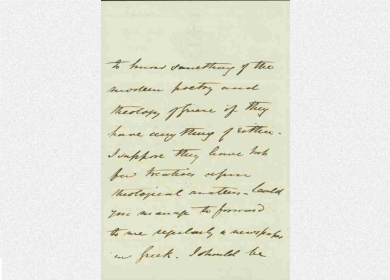 to know something of the
modern poetry and
theology of Greece if they
have any thing of either.
I suppose they have but
few treatises upon
theological matters. Could
you manage to forward
to me regularly a newspaper
in Greek. I should be